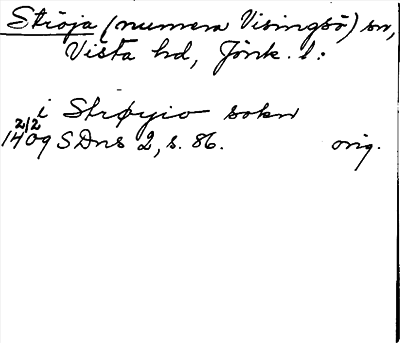 Ströja (numera Visingsö) sn,
Vista hd, Jönk. l:
i Strøyio sokn
2/2
1409 SDns 2, s. 86. orig.